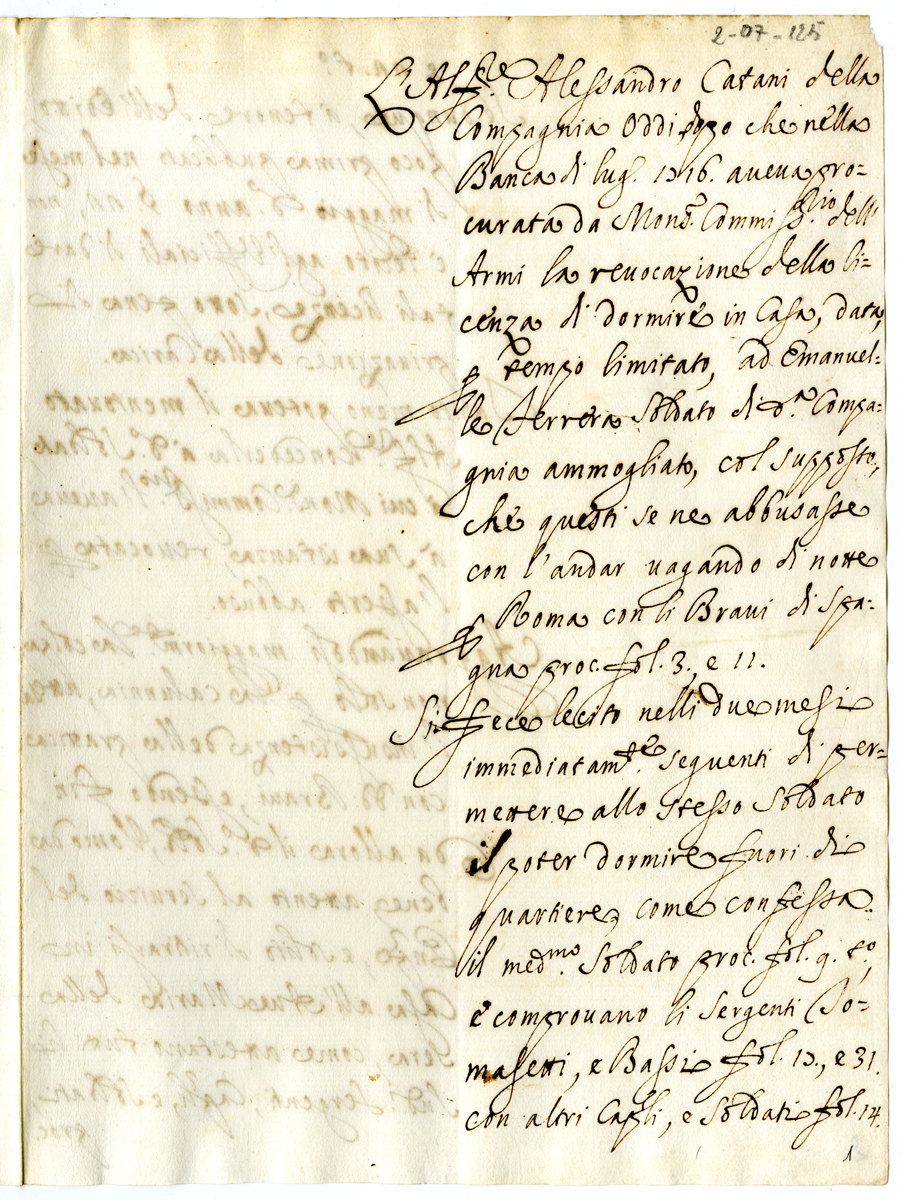 2-07-125
L'Alf.re Alessandro Catani della
Compagnia Oddi, dopo che nella
Banca di lug. 1716. aveva pro-
curata da Mons.r Commiss.rio dell'
Armi la revocazione della li-
cenza di dormire in Casa, data,
p tempo limitato, ad Emanuel-
le Ferrera Soldato di d.a Compa-
gnia ammogliato, col supposto,
che questi se ne abbusasse
con l'andar vagando di notte
p Roma con li Bravi di Spa-
gna proc. fol. 3., e 11.
Si fece lecito nelli due mesi
immediatam.te seguenti di per-
mettere allo stesso Soldato
il poter dormire fuori di
quartiere, come confessa
il med.mo Soldato proc. fol. 9. t.o,
e comprovano li Sergenti To-
masetti, e Bassi fol. 13., e 31.
con altri Cap.li, e Soldati fol. 14.
1